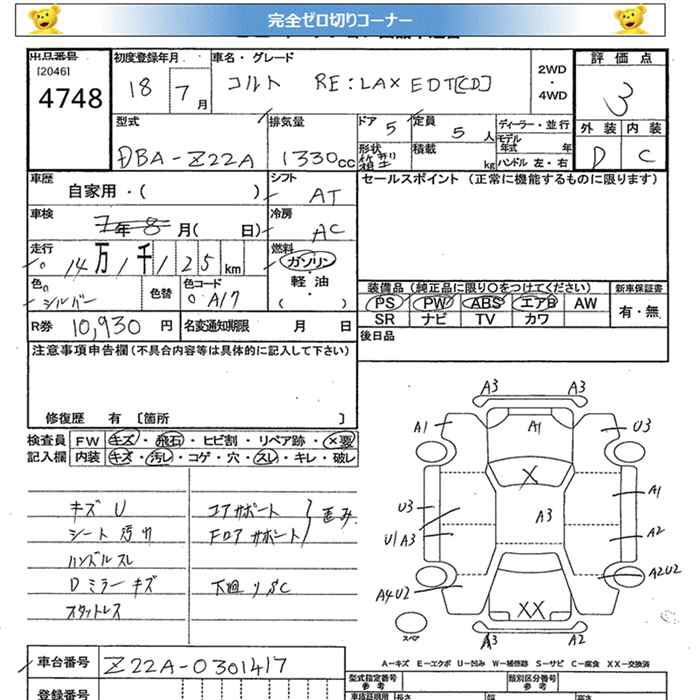 完全ゼロ切りコーナー
出品番号 初度登録年月 車名・グレード 評価点
[2046]
4748 18 7月 コルト RE:LAX EDT[CD] 2WD・4WD 3
型式 排気量 ドア 5 定員 5人 ディーラー・並行 外装 内装
モデル年式 年
DBA-Z22A 1330cc 形状 箱型 積載 kg ハンドル 左・右 D C
車歴 自家用・( ) シフト AT セールスポイント (正常に機能するものに限ります)
車検 7年8月( 日) 冷房 AC
走行 14万1千125km 燃料 ガソリン・軽油・( )
色 シルバー 色替 色コード A17
装備品 (純正品に限り○をつけてください) 新車保証書
PS PW ABS エアB AW 有・無
SR ナビ TV カワ
R券 10,930円 名変通知期限 月 日
後日品
注意事項申告欄(不具合内容等は具体的に記入して下さい)
修復歴 有 [箇所 ]
検査員 FW キズ・飛石・ヒビ割・リペア跡・×要
記入欄 内装 キズ・汚レ・コゲ・穴・スレ・キレ・破レ
キズ U コアサポート
シート 汚れ Fロアサポート 歪み
ハンドルスレ
Dミラーキズ 下廻り SC
スタットレス
A3 A3
A1 A1 U3
X
U3 A1
U1A3 A3 A2
A4U2 A2U2
XX
スペア A3 A2
A-キズ E-エクボ U-凹み W-補修跡 S-サビ C-腐食 XX-交換済
車台番号 Z22A-0301417 型式指定番号 参考 類別区分番号 参考
登録番号 長さ 幅 高さ